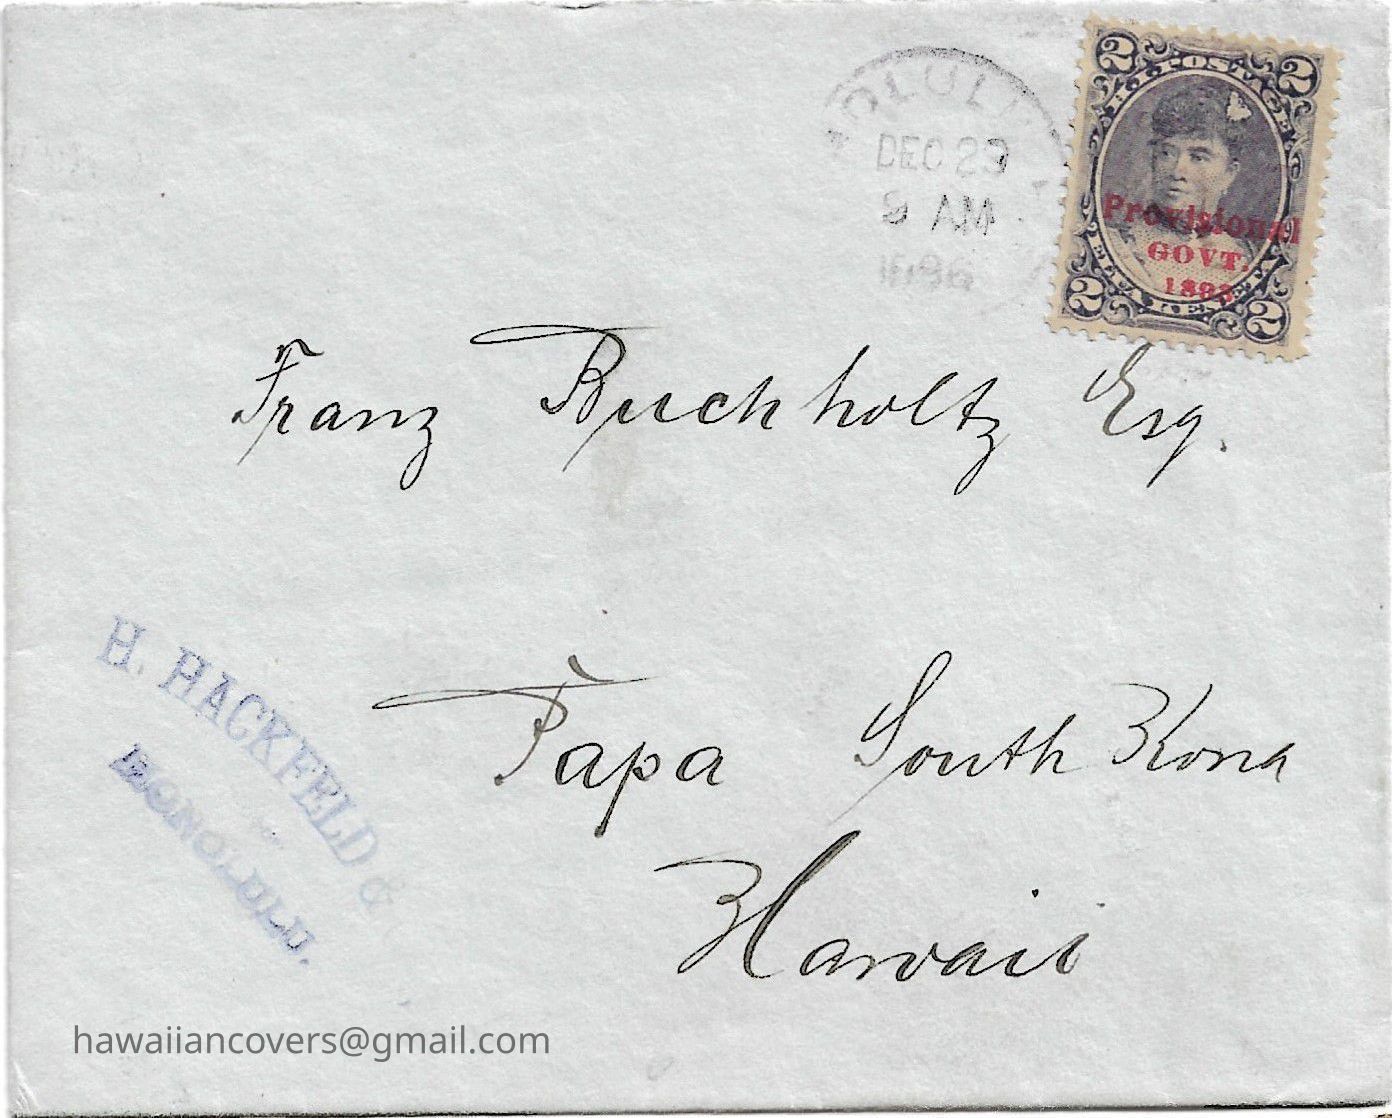 2 2
POSTAGE
HONOLULU
DEC 23
AM
Provisional
GOVT.
1893
2 2
Franz Buchholtz Esq.
H. HACKFELD &
HONOLULU.
Papa South Kona
Hawaii
hawaiiancovers@gmail.com